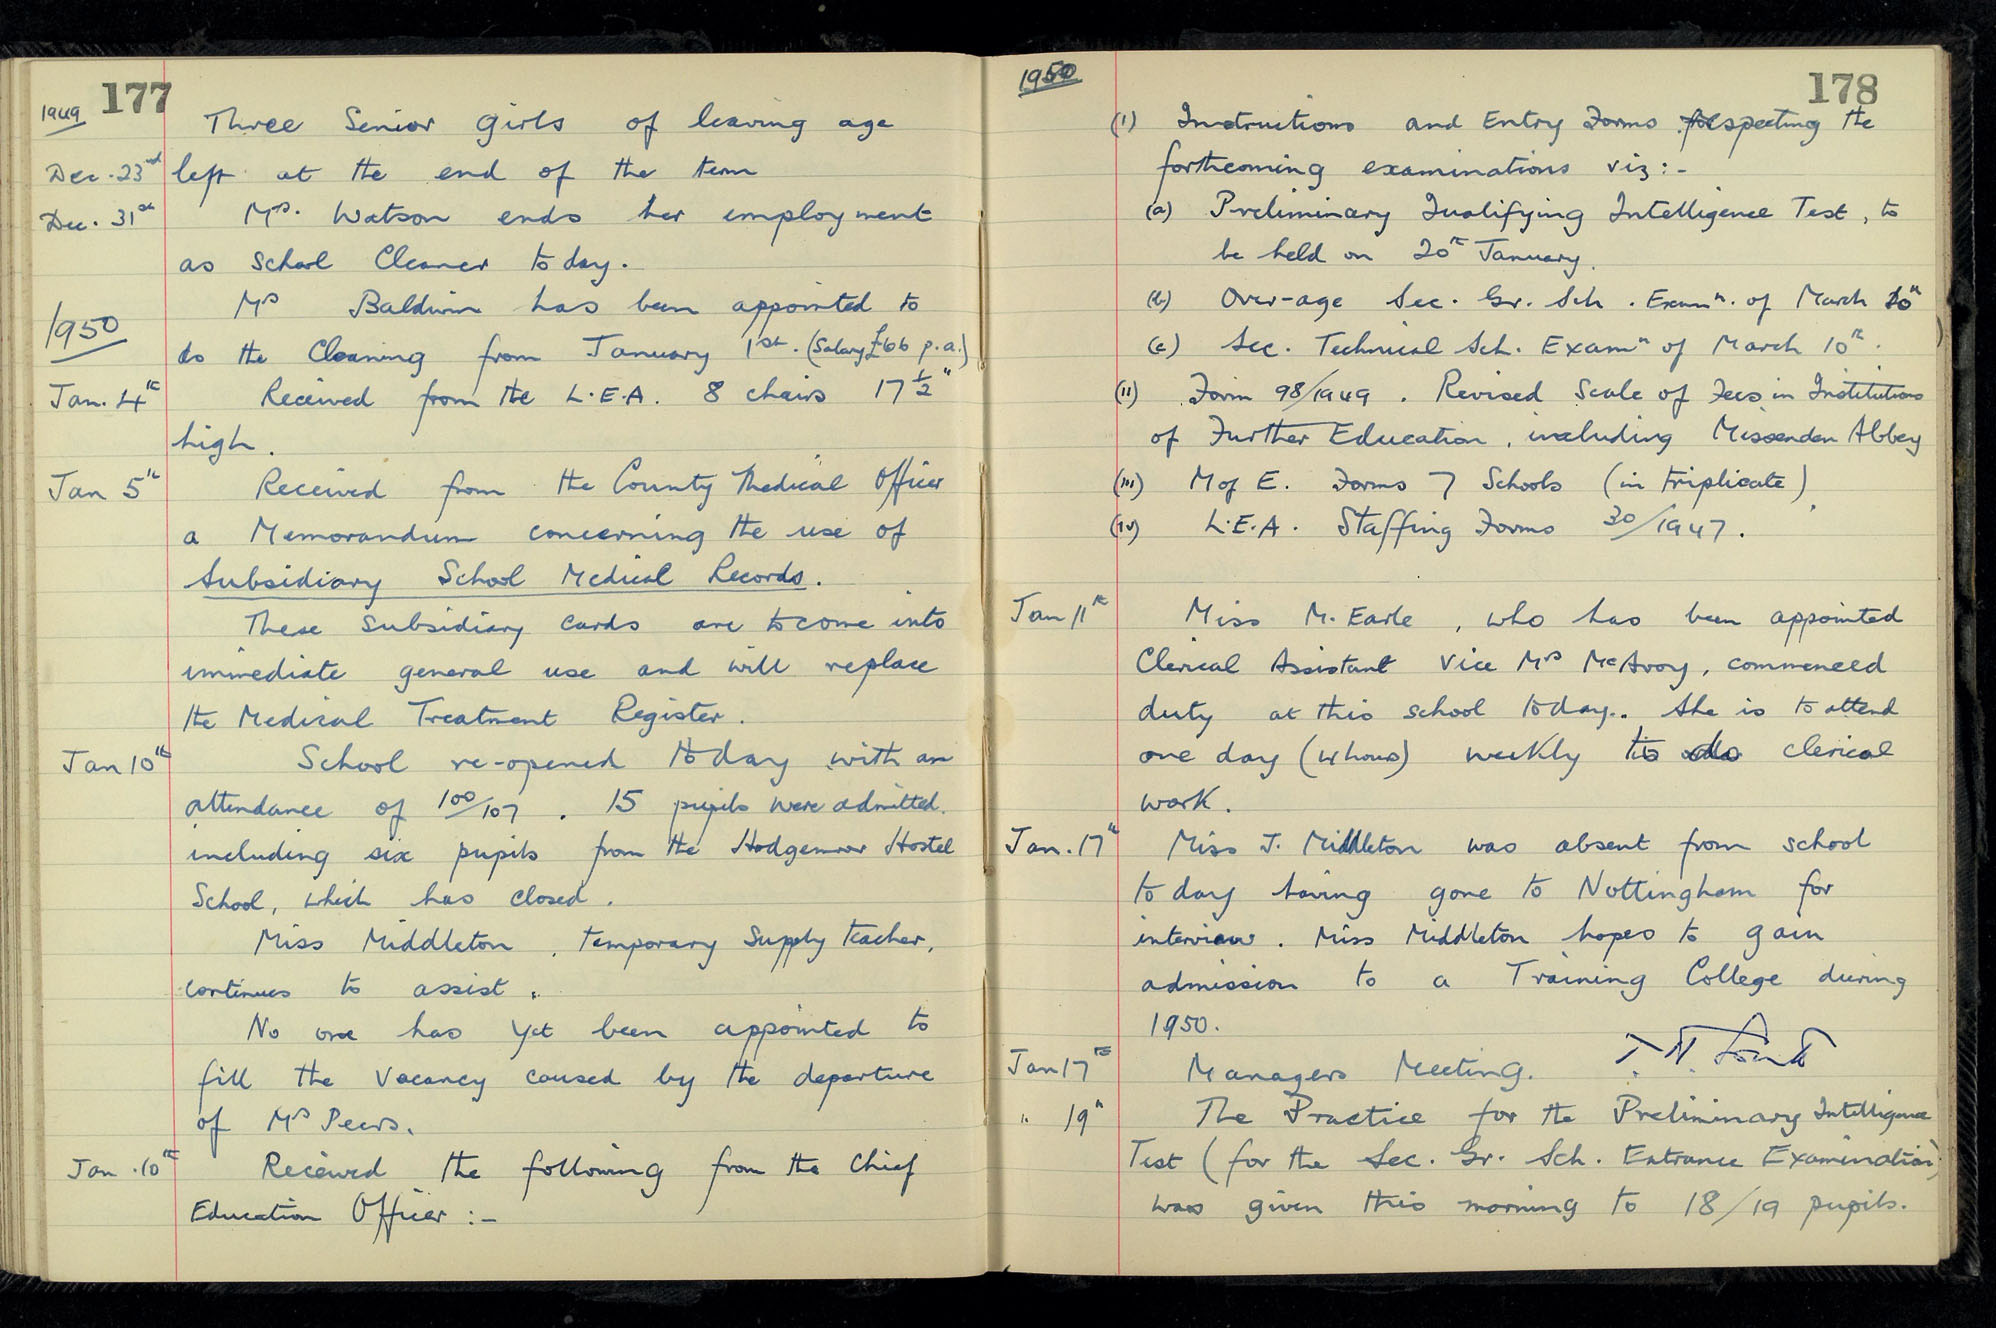 1949 177
Three Senior girls of leaving age
Dec. 23rd left at the end of the term
Dec. 31st Mrs. Watson ends her employment
as School Cleaner today.
Mrs Baldwin has been appointed to
1950
do the Cleaning from January 1st. (Salary £66 p.a.)
Jan. 4th Received from the L.E.A. 8 chairs 17 1/2"
high.
Jan 5th Received from the County Medical Officer
a Memorandum concerning the use of
Subsidiary School Medical Records.
These subsidiary cards are to come into
immediate general use and will replace
the Medical Treatment Register.
Jan 10th School re-opened today with an
attendance of 100/107. 15 pupils were admitted.
including six pupils from the Hodgemoor Hostel
School, which has closed.
Miss Middleton, temporary Supply teacher,
continues to assist.
No one has yet been appointed to
fill the vacancy caused by the departure
of Mrs Peers.
Jan. 10th Received the following from the Chief
Education Officer :-
1950 178
(i) Instructions and Entry Forms respecting the
forthcoming examinations viz:-
(a) Preliminary Qualifying Intelligence Test, to
be held on 20th January.
(b) Over-age Sec. Gr. Sch. Examn. of March 10th
(c) Sec. Technical Sch. Examn of March 10th.
(ii) Form 98/1949. Revised Scale of Fees in Institutions
of Further Education, including Missenden Abbey
(iii) M of E. Forms 7 Schools (in triplicate)
(iv) L.E.A. Staffing Forms 30/1947.
Jan 11th Miss M. Earle, who has been appointed
Clerical Assistant vice Mrs McAvoy, commenced
duty at this school today. She is to attend
one day (4 hours) weekly to do clerical
work.
Jan. 17th Miss J. Middleton was absent from school
today having gone to Nottingham for
interview. Miss Middleton hopes to gain
admission to a Training College during
1950.
Jan 17th Managers Meeting.
" 19th The Practice for the Preliminary Intelligence
Test (for the Sec. Gr. Sch. Entrance Examination)
was given this morning to 18/19 pupils.